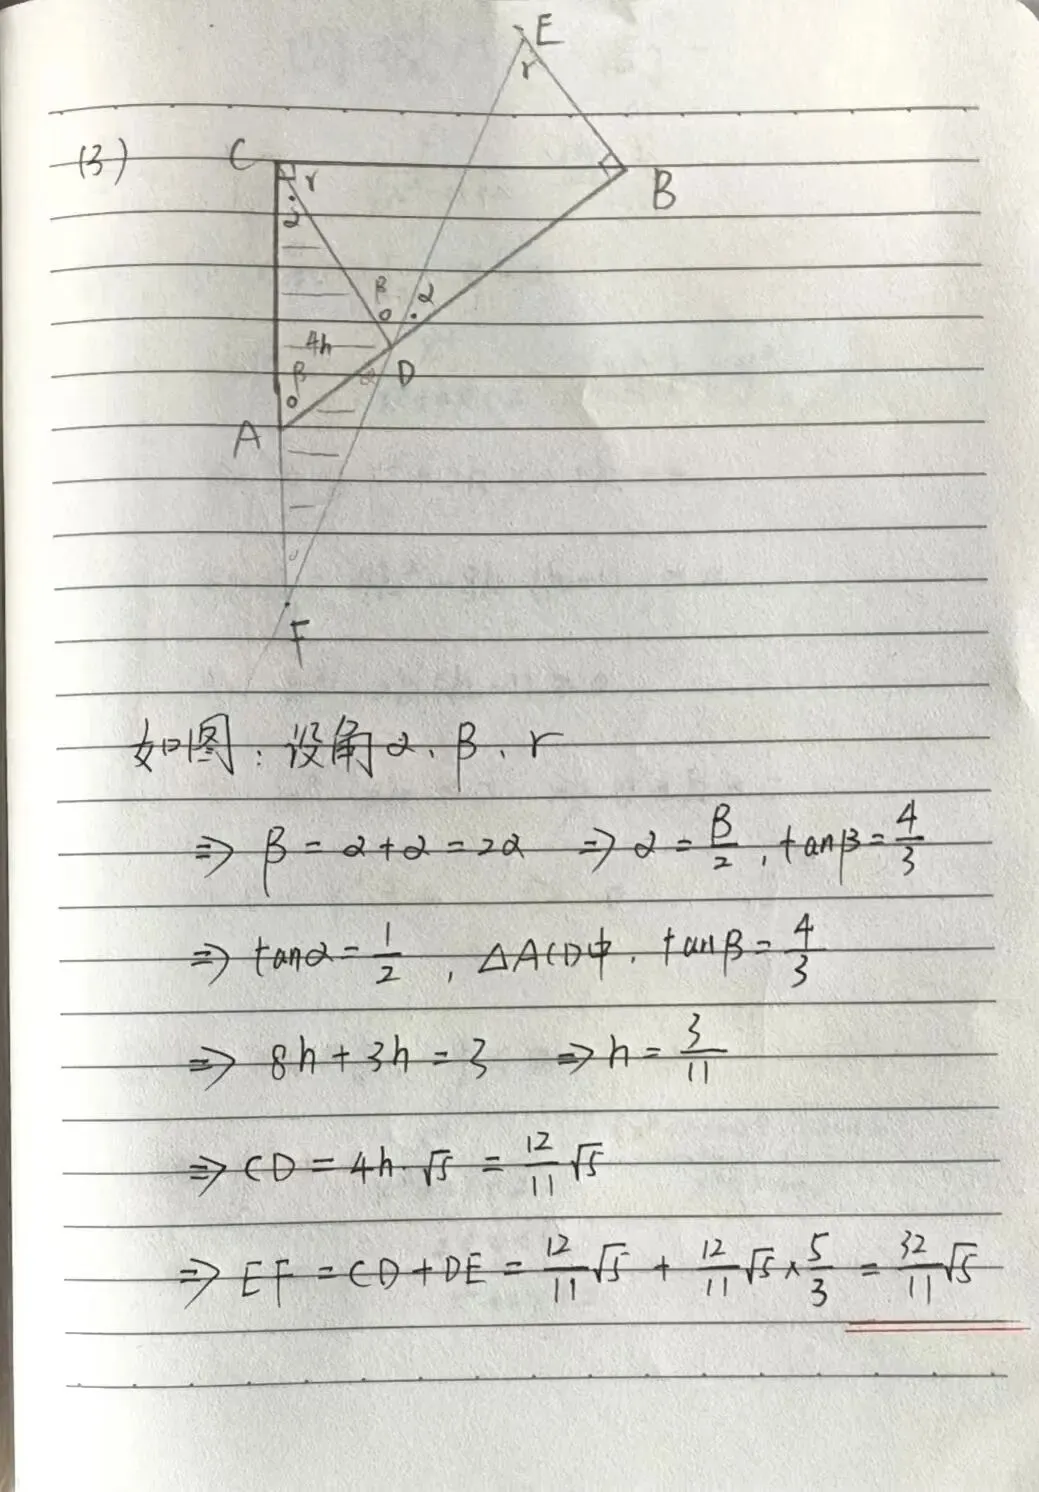 E
r
(3)
C
r
B
α
β
α
4h
β
α
D
A
F
如图:设角α、β、r
⇒ β = α+α = 2α ⇒ α = β/2 , tanβ = 4/3
⇒ tanα = 1/2 , △ACD中, tanβ = 4/3
⇒ 8h + 3h = 3 ⇒ h = 3/11
⇒ CD = 4h·√5 = 12/11 √5
⇒ EF = CD + DE = 12/11 √5 + 12/11 √5 × 5/3 = 32/11 √5